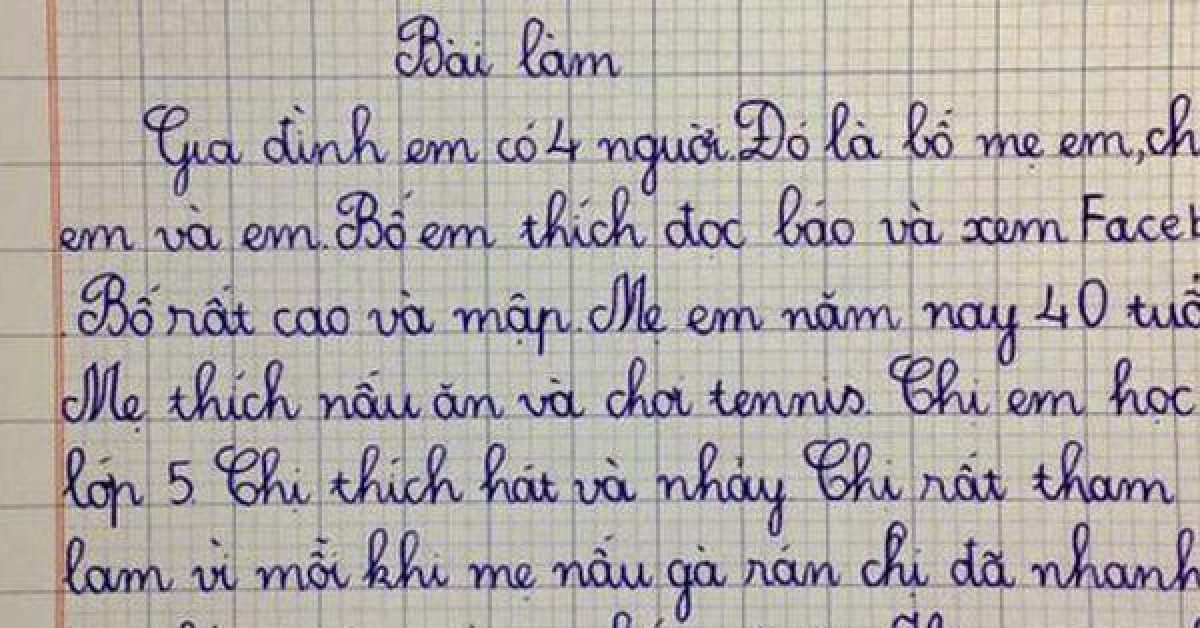 Bài làm
Gia đình em có 4 người. Đó là bố mẹ em, ch
em và em. Bố em thích đọc báo và xem Face
Bố rất cao và mập. Mẹ em năm nay 40 tuổ
Mẹ thích nấu ăn và chơi tennis. Chị em học
lớp 5. Chị thích hát và nhảy Chị rất tham
lam vì mỗi khi mẹ nấu gà rán chị đã nhanh